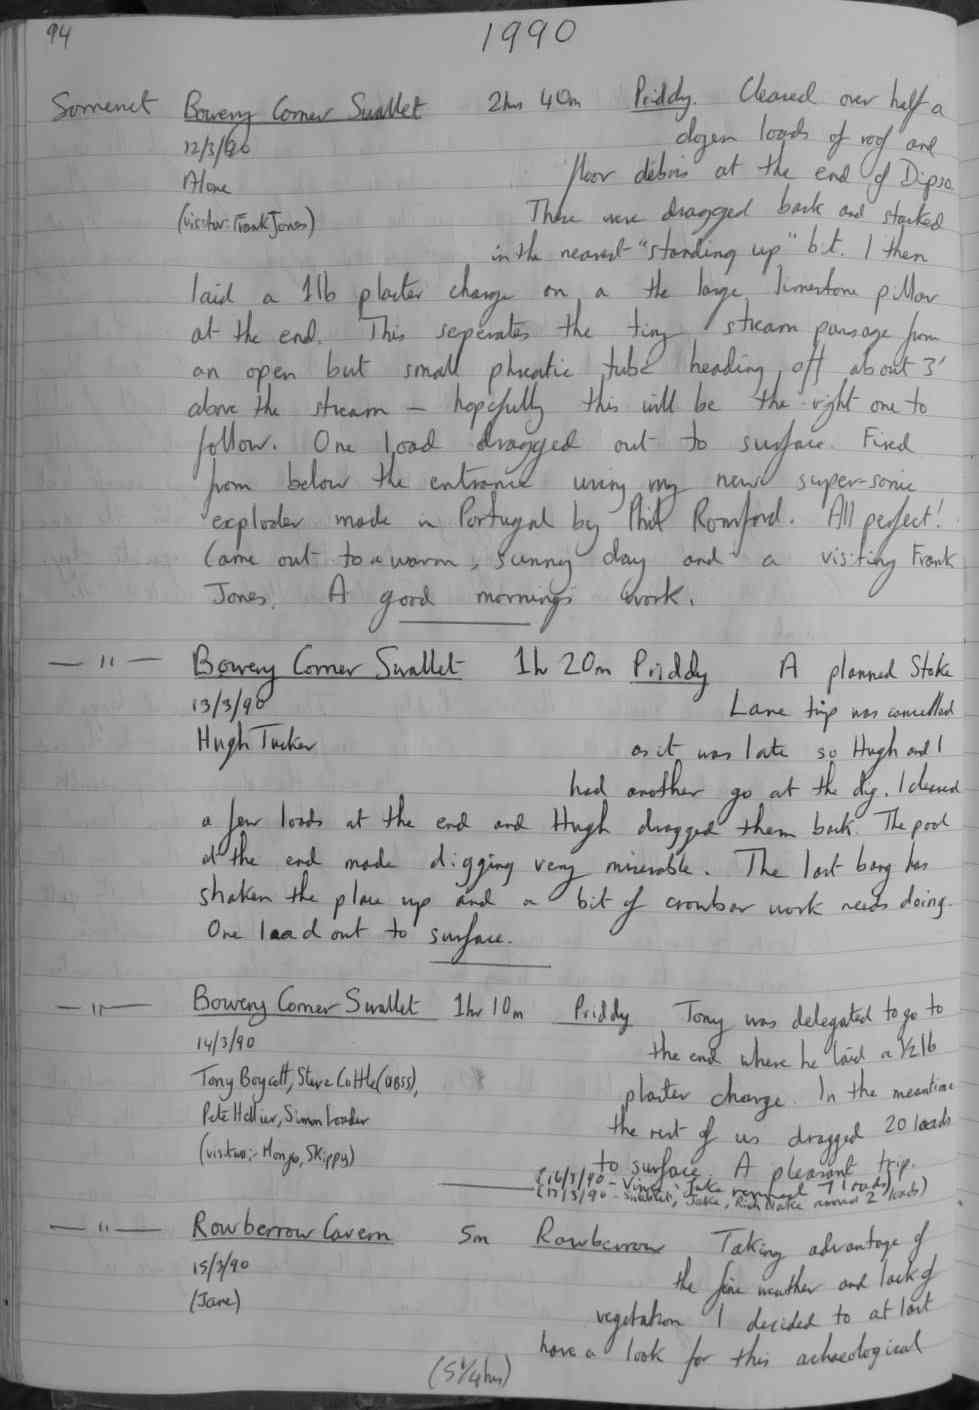 94
1990
Somerset Bowery Corner Swallet 2hrs 40m Priddy. Cleared over half a
12/3/90 dozen loads of roof and
Alone floor debris at the end of Dipso.
(visitor: Frank Jones) These were dragged back and stacked
in the nearest "standing up" bit. I then
laid a 1lb plaster charge on a the large limestone pillar
at the end. This seperates the tiny stream passage from
an open but small phreatic tube heading off about 3'
above the stream – hopefully this will be the right one to
follow. One load dragged out to surface. Fired
from below the entrance using my new super-sonic
exploder made in Portugal by Phil Romford. All perfect!
Came out to a warm, sunny day and a visiting Frank
Jones. A good mornings work.
— " — Bowery Corner Swallet 1h 20m Priddy A planned Stoke
13/3/90 Lane trip was cancelled
Hugh Tucker as it was late so Hugh and I
had another go at the dig. I cleared
a few loads at the end and Hugh dragged them back. The pool
at the end made digging very miserable. The last bang has
shaken the place up and a bit of crowbar work needs doing.
One load out to surface.
— " — Bowery Corner Swallet 1hr 10m Priddy Tony was delegated to go to
14/3/90 the end where he laid a ½lb
Tony Boycott, Steve Cottle (UBSS), plaster charge. In the meantime
Pete Hellier, Simon Loader the rest of us dragged 20 loads
(visitors:- Hongo, Skippy) to surface. A pleasant trip.
(16/3/90 - Vince, Jake removed 7 loads)
(17/3/90 - Jake, Rich Blake removed 2 loads)
— " — Rowberrow Cavern 5m Rowberrow Taking advantage of
15/3/90 the fine weather and lack of
(Jane) vegetation I decided to at last
have a look for this archaeological
(5¼hrs)